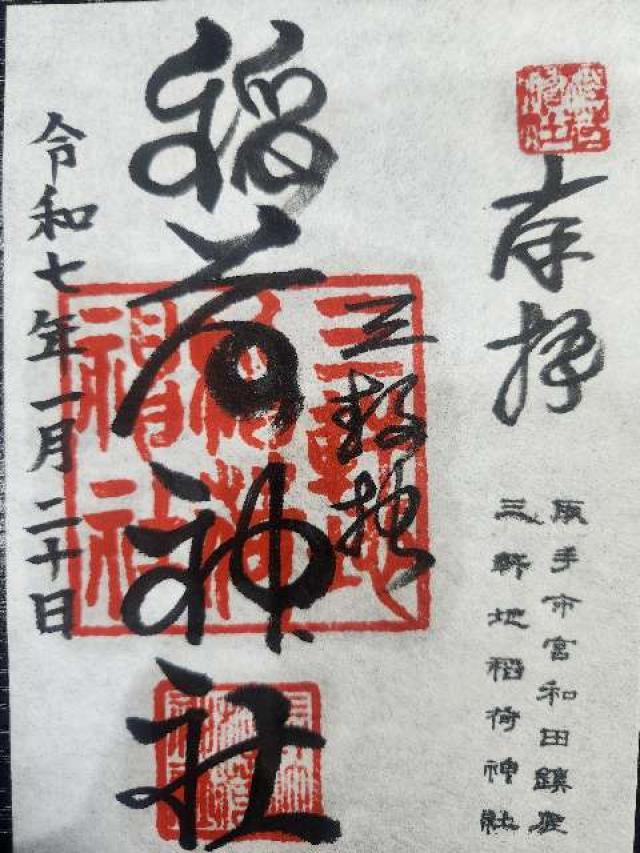 奉拝
取手市宮和田鎮座
三軒地稲荷神社
三軒地
稲荷神社
三軒地
稲荷
神社
令和七年一月二十日